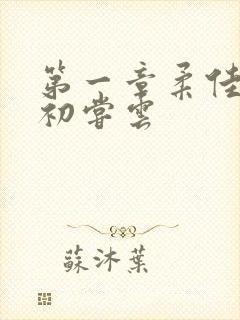 第一章柔佳
初嘗雲
蘇沐葉